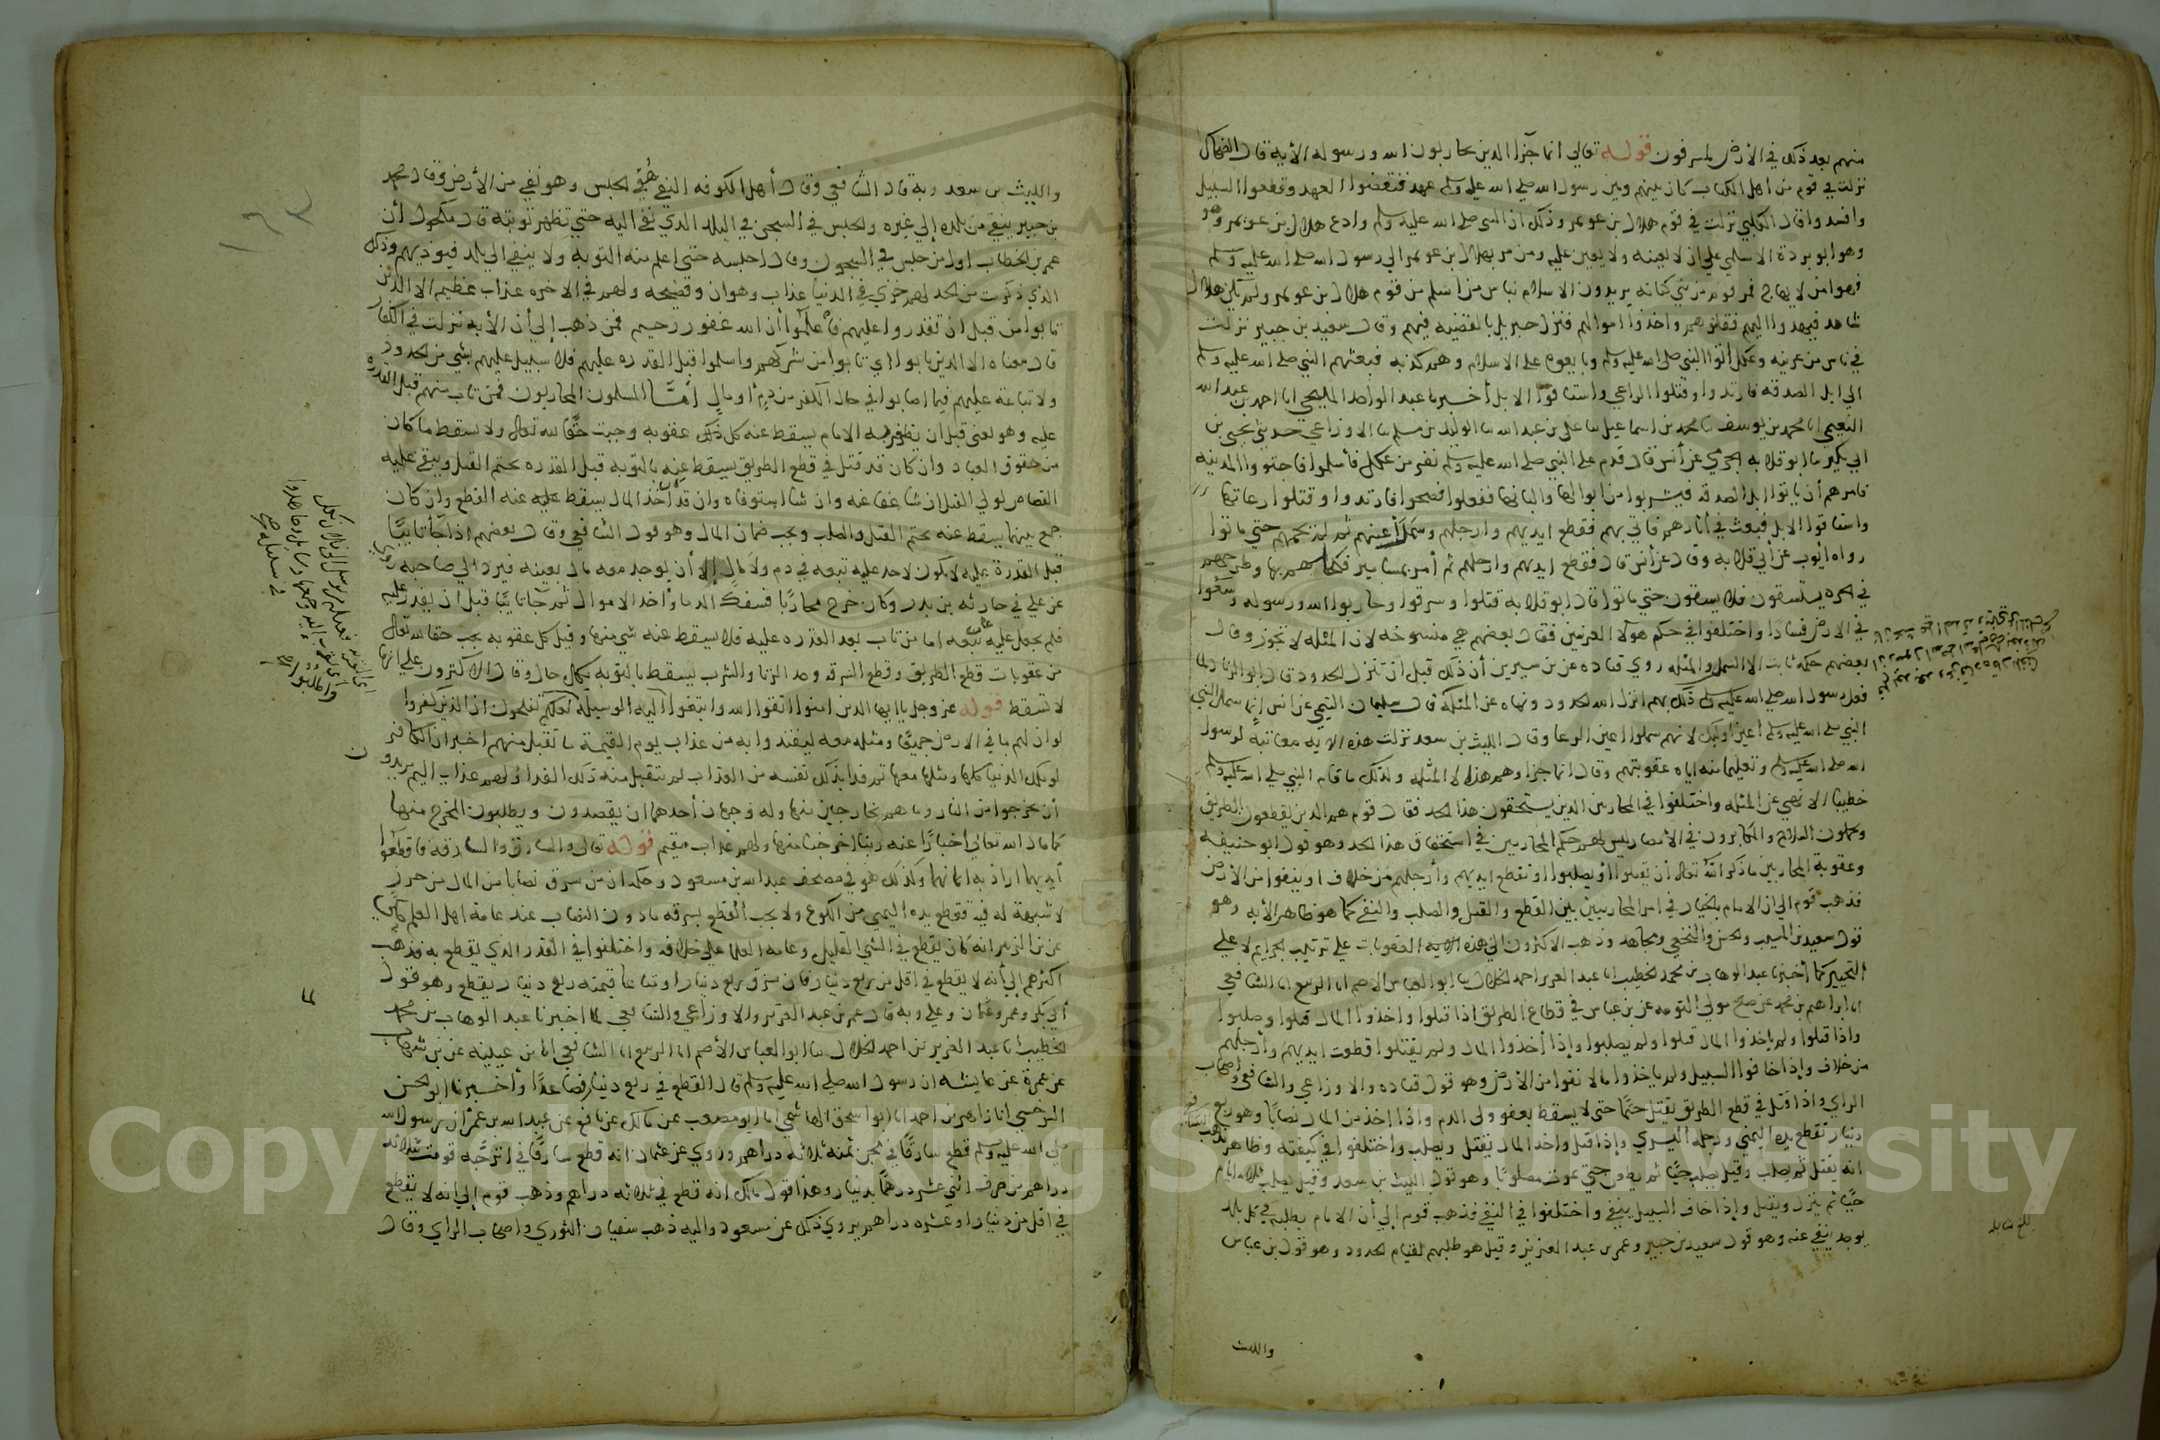 منهم بعد ذلك في الأرض لمسرفون قوله تعالى انما جزآ الذين يحاربون الله ورسوله الأية قال الضحاك
نزلت في قوم من اهل الكتاب كان بينهم وبين رسول الله صلى الله عليه وسلم عهد فنقضوا العهد وقطعوا السبيل
وافسدوا قال الكلبي نزلت في قوم هلال بن عويمر وذلك ان النبي صلى الله عليه وسلم وادع هلال بن عويمر
وهو ابو بردة الاسلمي على ان لا يعينه ولا يعين عليه ومن مر بهلال بن عويمر الى رسول الله صلى الله عليه وسلم
فهو امن لا يهاج فمر قوم من بني كنانه يريدون الاسلام بناس من اسلم من قوم هلال بن عويمر ولم يكن هلال
شاهد فنهدوا اليهم فقتلوهم واخذوا اموالهم فنزل جبريل بالقضيه فيهم وقال سعيد بن جبير نزلت
في ناس من عرينه وعكل اتوا النبي صلى الله عليه وسلم وبايعوه على الاسلام وهم كذبه فبعثهم النبي صلى الله عليه وسلم
الى ابل الصدقه فارتدوا وقتلوا الراعي واستاقوا الابل أخبرنا عبد الواحد المليحي انا احمد بن عبد الله
النعيمي انا محمد بن يوسف نا محمد بن اسماعيل نا علي بن عبد الله نا الوليد بن مسلم نا الاوزاعي حدثني يحيى بن
ابي بكير نا ابو قلابه الجرمي عن أنس قال قدم على النبي صلى الله عليه وسلم نفر من عكل فأسلموا فاجتووا المدينه
فامرهم أن يأتوا ابل الصدقه فيشربوا من ابوالها والبانها ففعلوا فصحوا فارتدوا وقتلوا رعاتها
واستاقوا الابل فبعث في أثارهم فاتي بهم فقطع ايديهم وارجلهم وسمل أعينهم ثم لم يحسمهم حتى ماتوا
رواه ايوب عن ابي قلابه وقال عن أنس قال فقطع ايديهم وارجلهم ثم أمر بمسامير فكحلهم بها وطرحهم
في الحره يستسقون فلا يسقون حتى ماتوا قال ابو قلابه قتلوا وسرقوا وحاربوا الله ورسوله وسعوا
في الارض فسادا واختلفوا في حكم هولا العرنيين فقال بعضهم هي منسوخه لان المثله لا تجوز وقال
بعضهم حكمه ثابت الا السمل والمثله روي قتاده عن بن سيرين أن ذلك قبل ان تنزل الحدود قال ابو الزناد لما
فعل رسول الله صلى الله عليه وسلم ذلك بهم انزل الله الحدود ونهاه عن المثلة قال سليمان التيمي عن انس إنما سمل النبي
النبي صلى الله عليه وسلم أعين اوليك لانهم سملوا اعين الرعا وقال الليث بن سعد نزلت هذه الايه معاتبة لرسول
الله صلى الله عليه وسلم وتعليما منه اياه عقوبتهم وقال انما جزاوهم هذا لا المثله ولذلك ما قام النبي صلى الله عليه وسلم
خطيبا الا نهى عن المثله واختلفوا في المحاربين الذين يستحقون هذا الحد فقال قوم هم الذين يقطعون الطريق
ويحملون السلاح والمكابرون في الأمصار ليس لهم حكم المحاربين في استحقاق هذا الحد وهو قول ابو حنيفه
وعقوبة المحاربين ما ذكر الله تعالى أن يقتلوا أو يصلبوا او تقطع ايديهم وأرجلهم من خلاف او ينفوا من الارض
فذهب قوم الى ان الامام بالخيار في امر المحاربين بين القطع والقتل والصلب والنفي كما هو ظاهر الأيه وهو
قول سعيد بن المسيب والحسن والنخعي ومجاهد وذهب الاكثرون الى هذه العقوبات على ترتيب الجرايم لا على
التخيير كما أخبرنا عبد الوهاب بن محمد الخطيب انا عبد العزيز احمد الخلال نا ابو العباس الاصم انا الربيع انا الشافعي
انا ابراهيم بن محمد عن صالح مولى التومه عن بن عباس في قطاع الطريق اذا قتلوا واخذوا المال قتلوا وصلبوا
واذا قتلوا ولم ياخذوا المال قتلوا ولم يصلبوا وإذا أخذوا المال ولم يقتلوا قطعت ايديهم وأرجلهم
من خلاف وإذا خافوا السبيل ولم ياخذوا مالا نفوا من الأرض وهو قول قتاده والاوزاعي والشافعي واصحاب
الراي واذا قتل في قطع الطريق يقتل حتمًا حتى لا يسقط بعفو ولي الدم واذا اخذ من المال نصابًا وهو ربع
دينار تقطع يده اليمنى ورجله اليسرى وإذا قتل واخذ المال يقتل ويصلب واختلفوا في كيفيته وظاهر
انه يقتل ثم يصلب وقيل يصلب حيًّا ثم يطعن حتى يموت مصلوبًا وهو قول الليث بن سعد وقيل يصلب ثلاثه ايام
حيًّا ثم ينزل ويقتل وإذا خاف السبيل ينفى واختلفوا في النفي فذهب قوم إلى أن الامام يطلبه في كل بلد
يوجد ينفي عنه وهو قول سعيد بن جبير وعمر بن عبد العزيز وقيل هو طلبهم لقيام الحدود وهو قول بن عباس
والليث
والليث بن سعد وبه قال الشافعي وقال أهل الكوفه النفي هو الحبس وهو نفي من الأرض وقال محمد
بن جبير ينفى من بلده إلى غيره ويحبس في السجن في البلد الذي نفي اليه حتى تظهر توبته قال مكحول أن
عمر بن الخطاب اول من حبس في السجون وقال احبسه حتى اعلم منه التوبه ولا ينفي الى بلد فيوذيهم وذلك
الذي ذكرت من الحد لهم خزي في الدنيا عذاب وهوان وفضيحه ولهم في الاخره عذاب عظيم الا الذين
تابوا من قبل ان تقدروا عليهم فاعلموا أن الله غفور رحيم فمن ذهب إلى أن الأيه نزلت في الكفار
قال معناه الا الذين تابوا اي تابوا من شركهم واسلموا قبل القدره عليهم فلا سبيل عليهم بشي من الحدود
ولا تباعة عليهم فيما اصابوا في حال الكفر من دم أو مال أمّا المسلمون المحاربون فمن تاب منهم قبل القدره
عليه وهو يعنى قبل ان يظفر به الامام يسقط عنه كل ذلك عقوبه وجبت حقًّا لله تعالى ولا يسقط ما كان
من حقوق العباد وان كان قد قتل في قطع الطريق يسقط عنه بالتوبه قبل القدره تحتم القتل ويبقى عليه
القصاص لولي القتل ان شا عفا عنه وان شا استوفاه وان قد أخذ المال يسقط عليه عنه القطع وإن كان
جمع بينهما يسقط عنه تحتم القتل والصلب ويجب ضمان المال وهو قول الشافعي وقال بعضهم اذا جآ تايبًا
قبل القدرة عليه لا يكون لاحد عليه تبعه في دم ولا مال إلا أن يوجد معه مال بعينه فيرد الى صاحبه روي
عن علي في حارثه بن بدر وكان خرج محاربًا فسفك الدما وأخذ الاموال ثم جآ تايبًا قبل ان يقدر عليه
فلم يجعل عليه تبعه اما من تاب بعد القدره عليه فلا يسقط عنه شي منها وقيل كل عقوبه يجب حقا لله تعالى
من عقوبات قطع الطريق وقطع السرقه وحد الزنا والشرب يسقط بالتوبه بكل حال وقال الاكثرون على انها
لا تسقط قوله عز وجل يا ايها الذين امنوا اتقوا الله وابتغوا اليه الوسيله لعلكم تفلحون ان الذين كفروا
لو ان لهم ما في الارض جميعًا ومثله معه ليفتدوا به من عذاب يوم القيمة ما تقبل منهم اخبر ان الكافر
لو ملك الدنيا كلها ومثلها معها ثم فدا بذلك نفسه من العذاب لم يتقبل منه ذلك الفدا ولهم عذاب اليم يريدون
أن يخرجوا من النار وما هم بخارجين منها وله وجهان أحدهما ان يقصدون ويطلبون المخرج منها
كما قال الله تعالى إخبارًا عنه ربنا اخرجنا منها ولهم عذاب مقيم قوله تعالى والسارق والسارقه فاقطعوا
أيديهما اراد به ايمانهما وكذلك هو في مصحف عبد الله بن مسعود وحكمه ان من سرق نصابا من المال من حرز
لا شبهة له فيه فقطع يده اليمنى من الكوع ولا يجب القطع بسرقه مادون النصاب عند عامة اهل العلم
عن بن الزبير انه كان يقطع في الشي القليل وعامه العلما على خلافه واختلفوا في القدر الذي يقطع به فذهب
اكثرهم إلى أنه لا يقطع في اقل من ربع دينار فان سرق ربع دينار او متاعا قيمته ربع دينار يقطع وهو قول
أبي بكر وعمر وعثمان وعلي وبه قال عمر بن عبد العزيز والاوزاعي والشافعي لما اخبرنا عبد الوهاب بن محمد
الخطيب نا عبد العزيز بن احمد الخلال نا ابو العباس الأصم انا الربيع انا الشافعي انا بن عيينه عن بن شهاب
عن عمرة عن عايشه ان رسول الله صلى الله عليه وسلم قال القطع في ربع دينار فصاعدًا وأخبرنا ابو الحسن
السرخسي انا زاهر بن احمد انا ابو اسحق الهاشمي انا ابو مصعب عن مالك عن نافع عن عبد الله بن عمر أن رسول الله
صلى الله عليه وسلم قطع سارقًا في مجن ثمنه ثلاثه دراهم وروي عن عثمان انه قطع سارقًا في اترجّه قومت بثلاثه
دراهم من صرف اثني عشر درهمًا بدينار وهذا قول مالك انه قطع في ثلاثه دراهم وذهب قوم إلى انه لا يقطع
في اقل من دينار او عشره دراهم يروي ذلك عن مسعود واليه ذهب سفيان الثوري واصحاب الراي وقال
Copyright © King Saud University